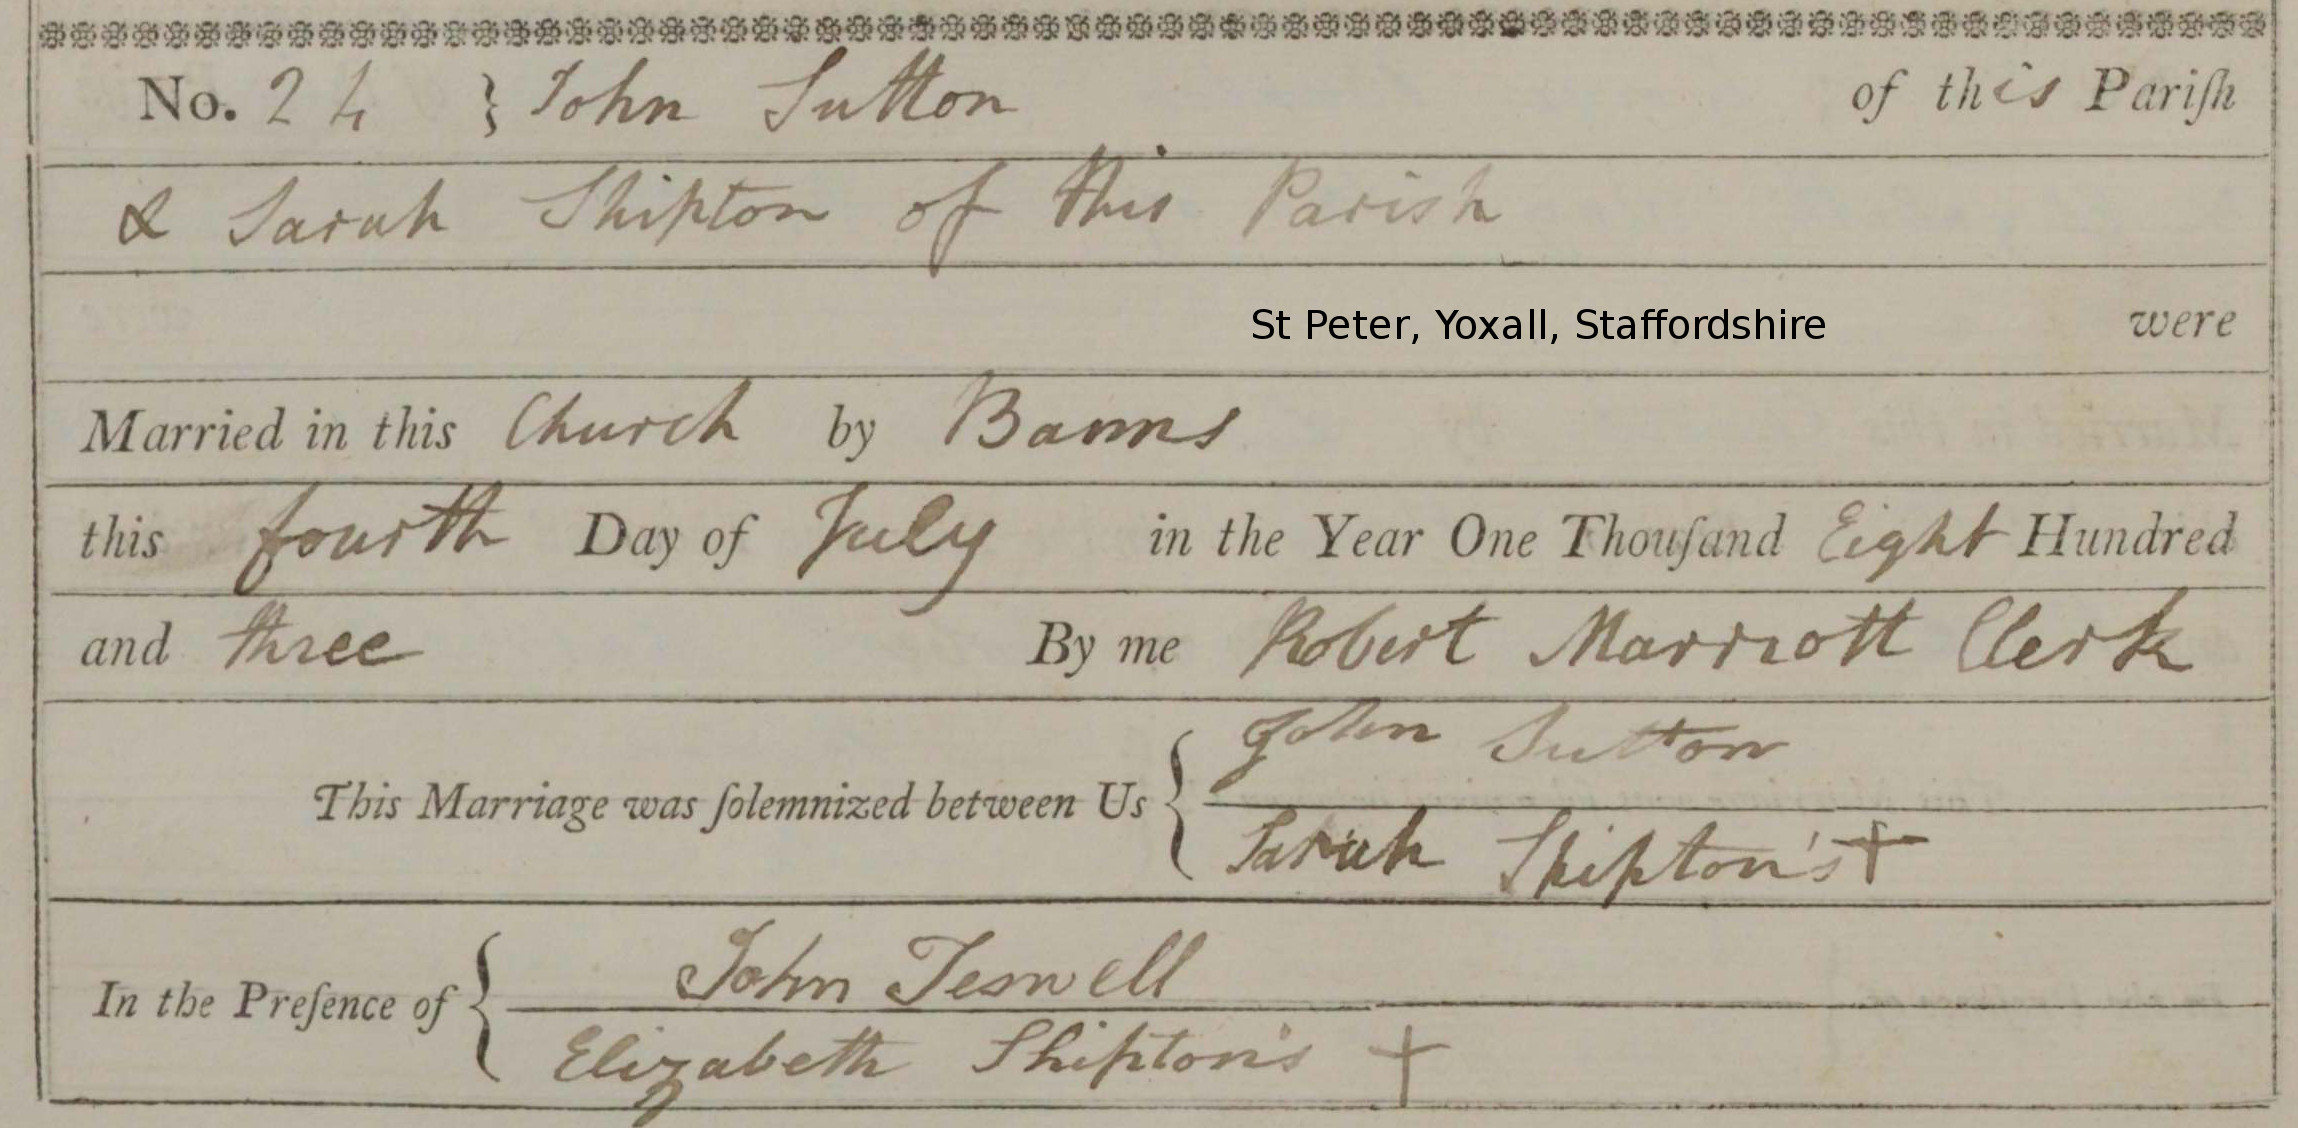 No. 24 } John Sutton of this Pariſh
& Sarah Shipton of this Parish
St Peter, Yoxall, Staffordshire were
Married in this Church by Banns
this fourth Day of July in the Year One Thouſand Eight Hundred
and three By me Robert Marriott Clerk
This Marriage was ſolemnized between Us { John Sutton
Sarah Shipton's +
In the Preſence of { John
Elizabeth Shipton's +